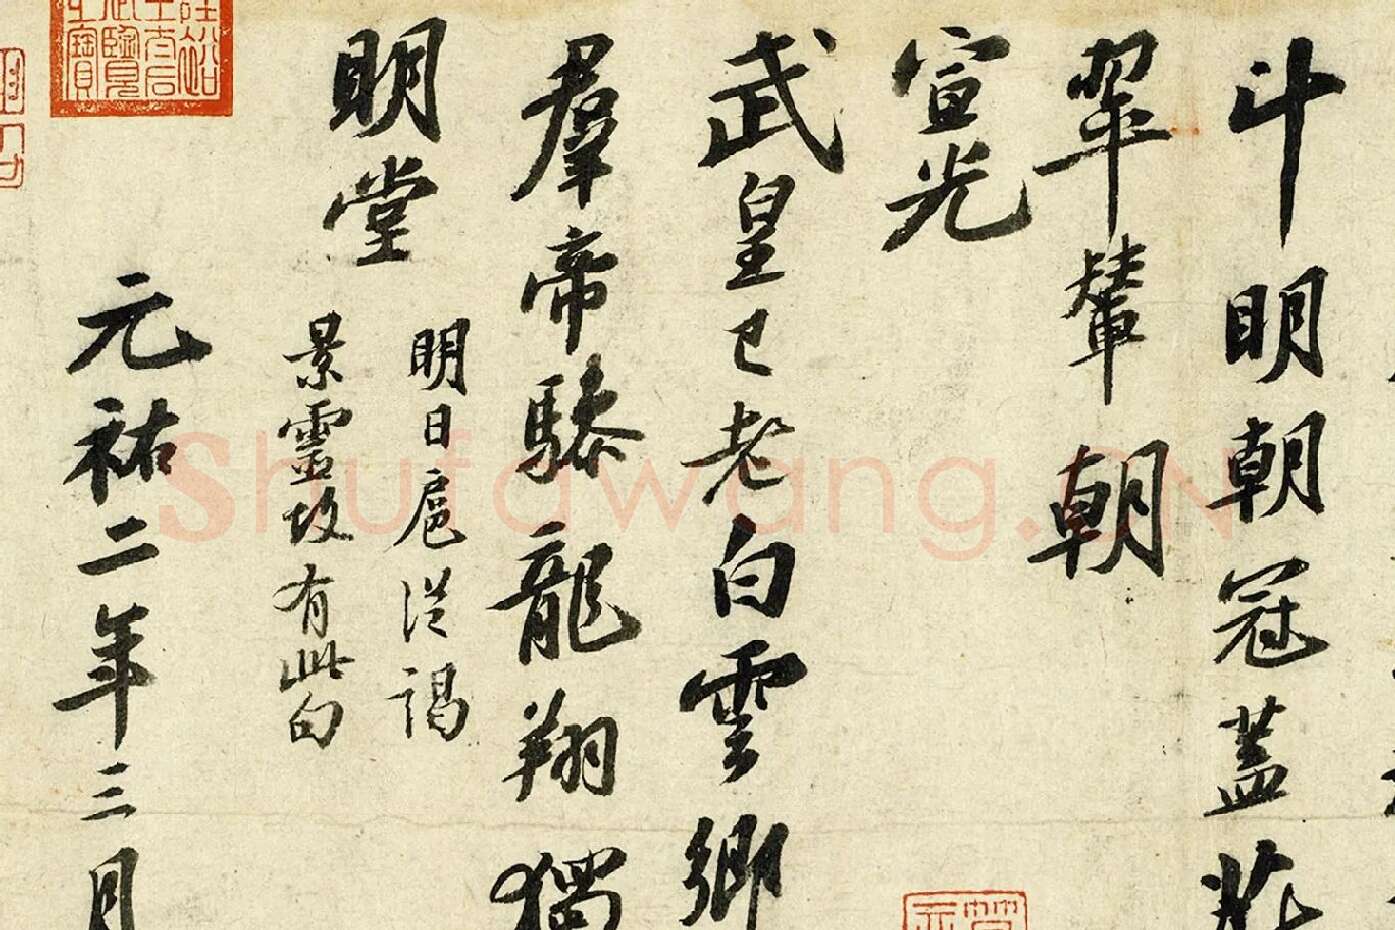 斗明朝冠蓋
翠輦朝
宣光
武皇已老白雲鄉
羣帝驂龍翔獨
明堂
明日扈從謁
景靈故有此句
元祐二年三月
Shufawang.CN